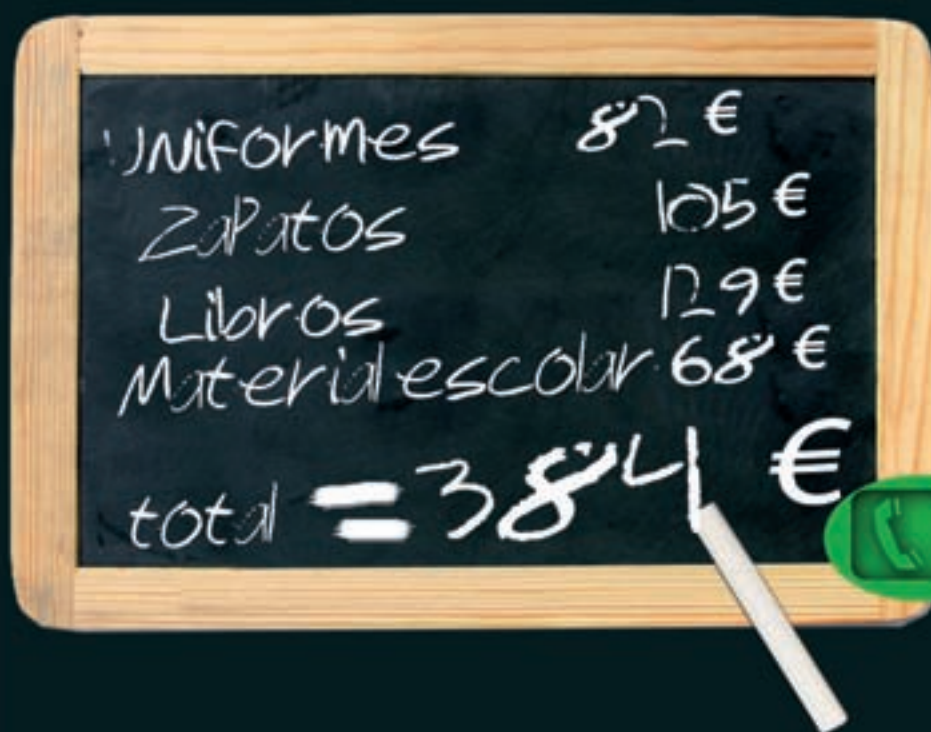 Uniformes 82 €
Zapatos 105 €
Libros 129 €
Material escolar 68 €
total = 384 €